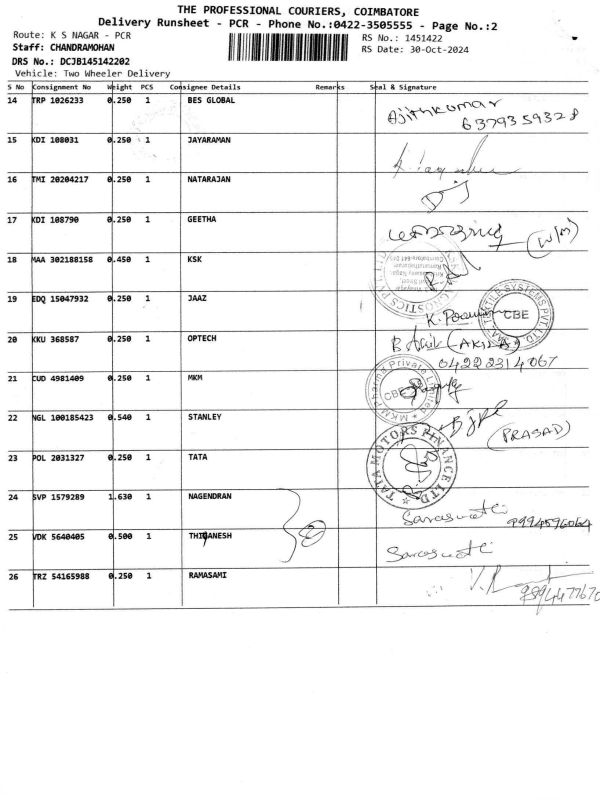 THE PROFESSIONAL COURIERS, COIMBATORE
Delivery Runsheet - PCR - Phone No.:0422-3505555 - Page No.:2
Route: K S NAGAR - PCR
RS No.: 1451422
Staff: CHANDRAMOHAN
RS Date: 30-Oct-2024
DRS No.: DCJB145142202
Vehicle: Two Wheeler Delivery
S No Consignment No Weight PCS Consignee Details Remarks Seal & Signature
14 TRP 1026233 0.250 1 BES GLOBAL Ajithkumar
6379359328
15 KDI 108031 0.250 1 JAYARAMAN
16 TMI 20204217 0.250 1 NATARAJAN
17 KDI 108790 0.250 1 GEETHA (W/M)
18 MAA 302188158 0.450 1 KSK
19 EDQ 15047932 0.250 1 JAAZ
CBE
20 KKU 368587 0.250 1 OPTECH (AKILA)
0422 2314067
21 CUD 4981409 0.250 1 MKM
MKM Pharma Private Limited
CBE
22 NGL 100185423 0.540 1 STANLEY
(PRASAD)
23 POL 2031327 0.250 1 TATA
TATA MOTORS FINANCE LTD
24 SVP 1579289 1.630 1 NAGENDRAN Saraswati 9994596064
25 VDK 5640405 0.500 1 THIYANESH Saraswati
26 TRZ 54165988 0.250 1 RAMASAMI